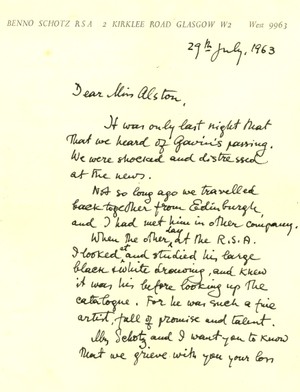 BENNO SCHOTZ RSA 2 KIRKLEE ROAD GLASGOW W2 West 9963
29th July, 1963
Dear Miss Alston,
It was only last night that
that we heard of Gavin's passing.
We were shocked and distressed
at the news.
Not so long ago we travelled
back together from Edinburgh,
and I had met him in other company.
When the other day at the R.S.A.
I looked at and studied his large
black & white drawing, and knew
it was his before looking up the
catalogue. For he was such a fine
artist, full of promise and talent.
Mrs Schotz and I want you to know
that we grieve with you your loss